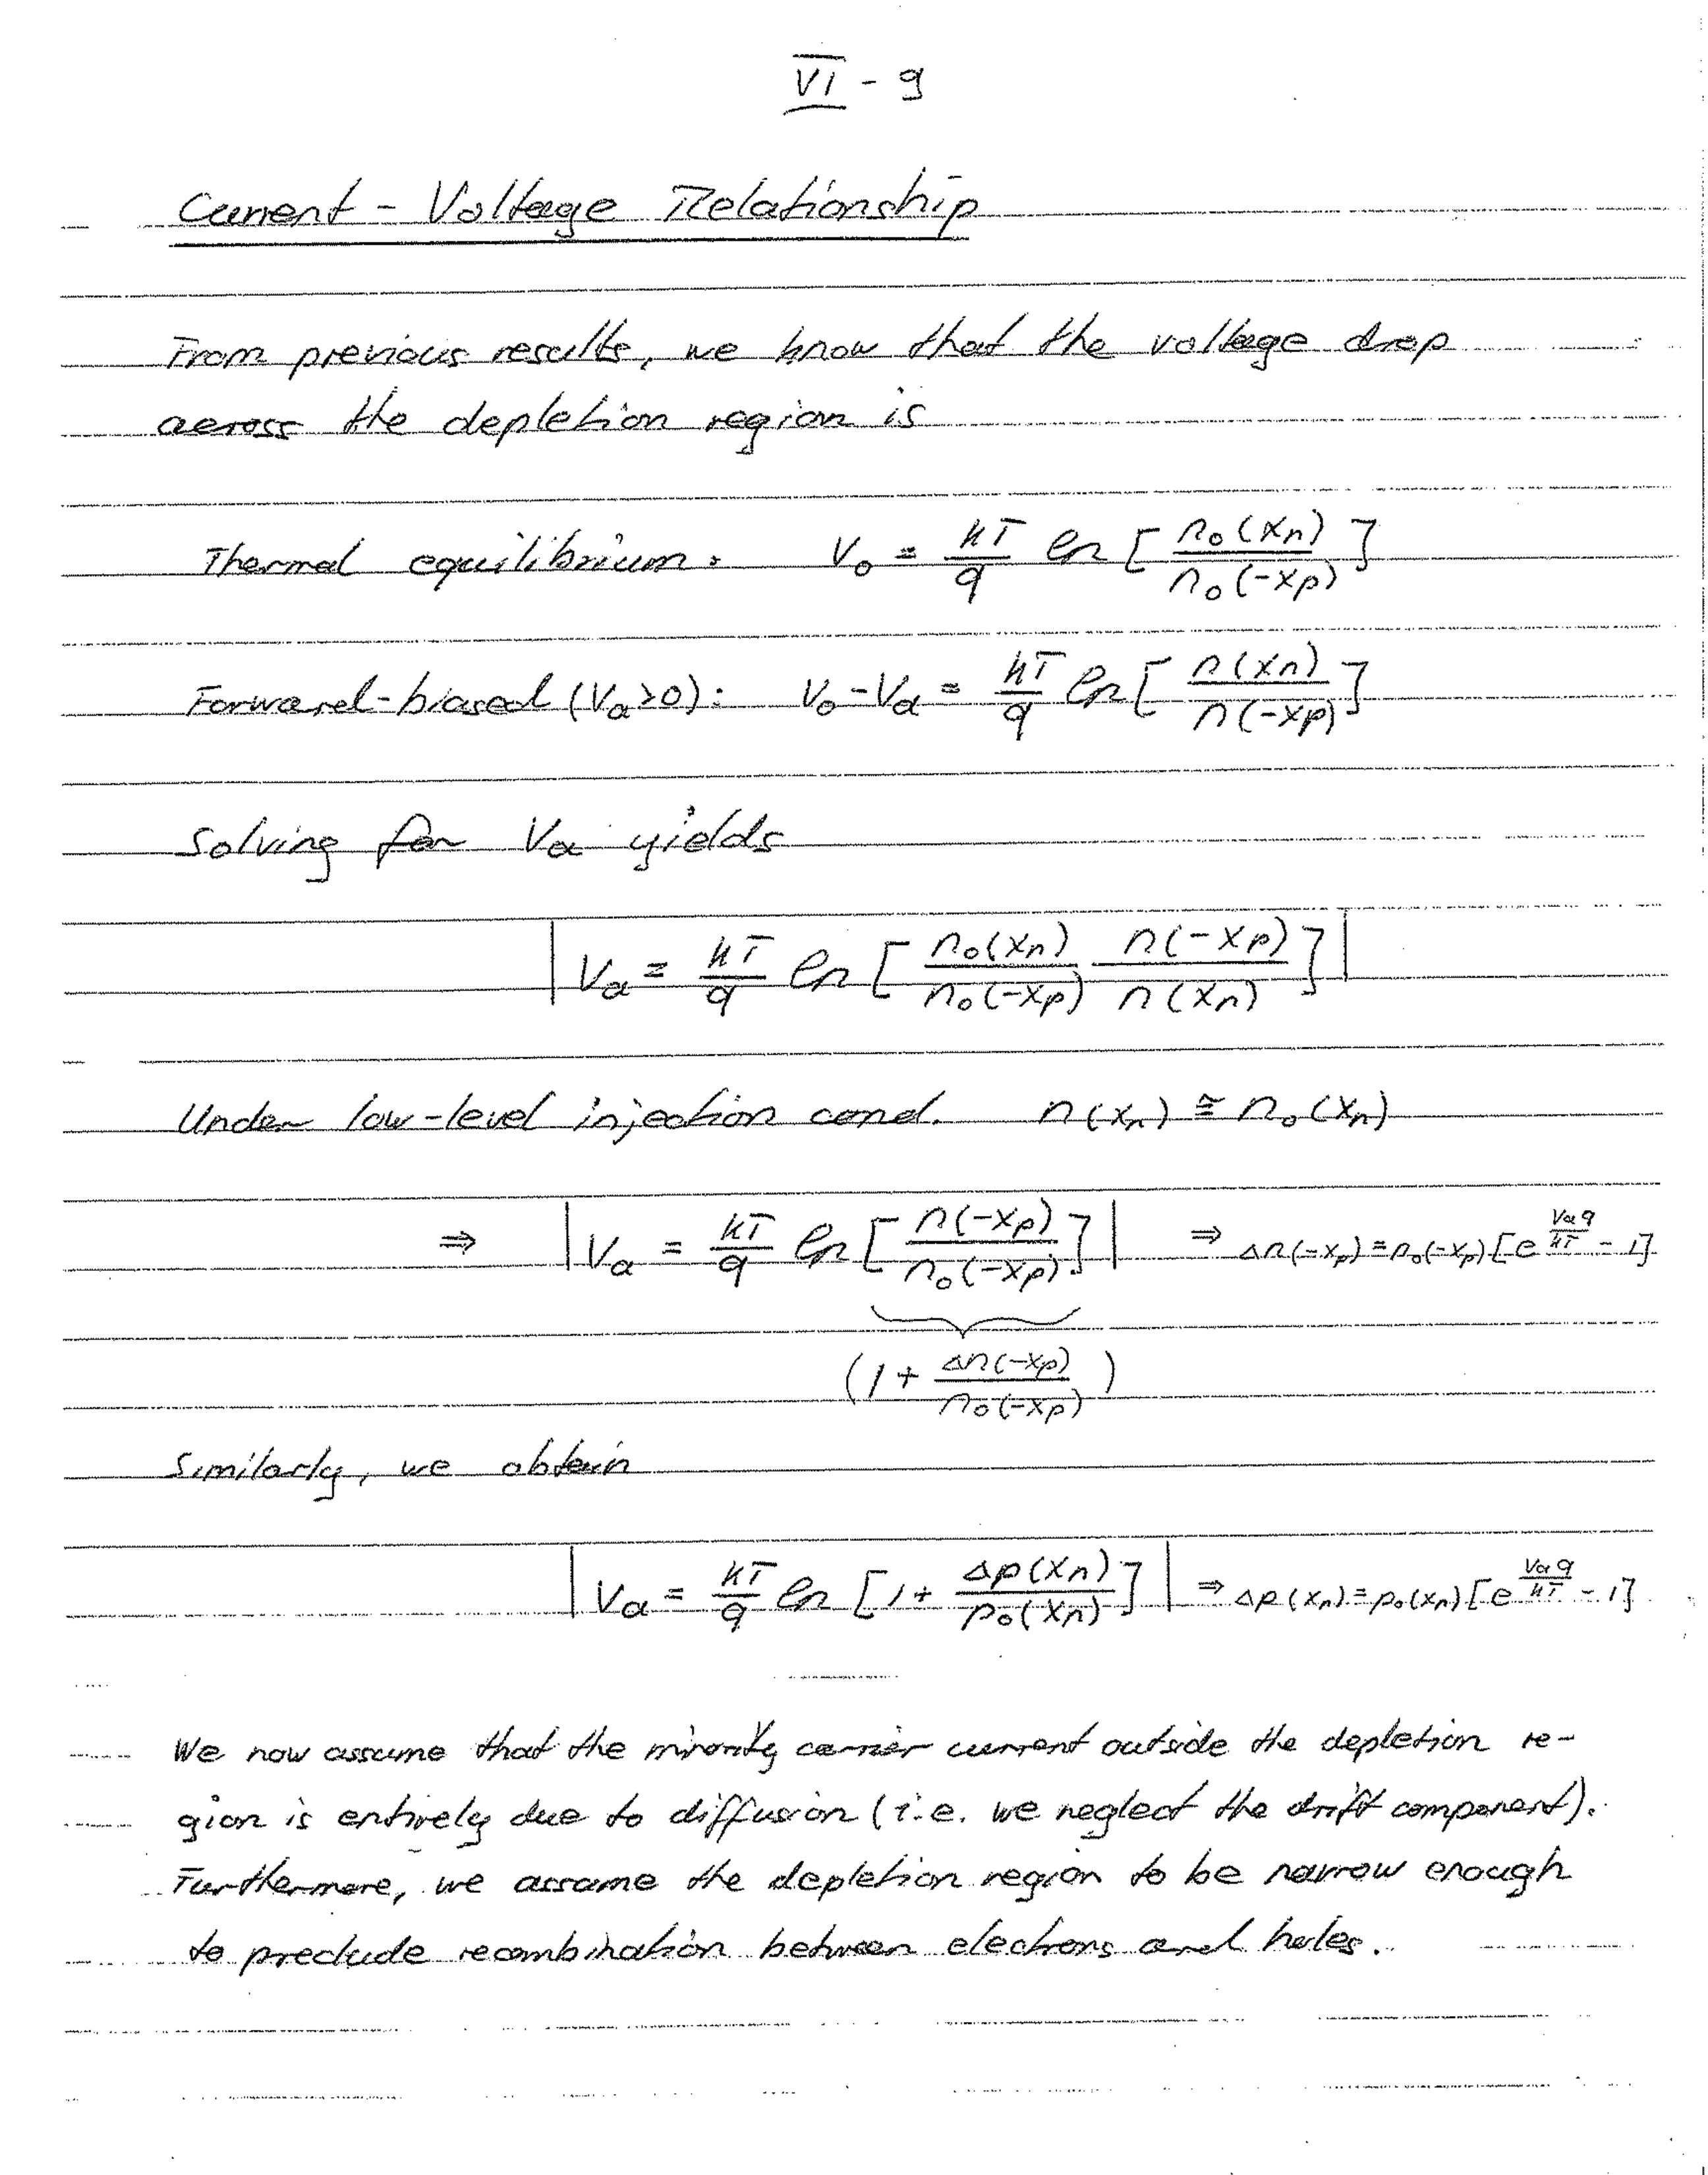 VI - 9
Current - Voltage Relationship
From previous results, we know that the voltage drop
across the depletion region is
Thermal equilibrium: V₀ = kT/q ln [ n₀(xₙ) / n₀(-xₚ) ]
Forward-biased (Vₐ>0): V₀-Vₐ = kT/q ln [ n(xₙ) / n(-xₚ) ]
Solving for Vₐ yields
| Vₐ = kT/q ln [ n₀(xₙ)/n₀(-xₚ) n(-xₚ)/n(xₙ) ] |
Under low-level injection cond. n(xₙ) ≅ n₀(xₙ)
⇒ | Vₐ = kT/q ln [ n(-xₚ)/n₀(-xₚ) ] | ⇒ Δn(-xₚ) = n₀(-xₚ) [e^(Vₐq/kT) - 1]
(1 + Δn(-xₚ)/n₀(-xₚ))
Similarly, we obtain
| Vₐ = kT/q ln [1 + Δp(xₙ)/p₀(xₙ)] | ⇒ Δp(xₙ) = p₀(xₙ) [e^(Vₐq/kT) - 1]
We now assume that the minority carrier current outside the depletion re-
gion is entirely due to diffusion (i.e. we neglect the drift component).
Furthermore, we assume the depletion region to be narrow enough
to preclude recombination between electrons and holes.